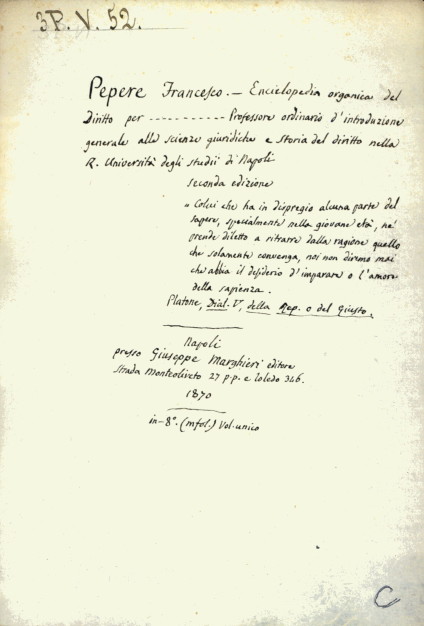 3P. V. 52.
Pepere Francesco. — Enciclopedia organica del
Diritto per ---------- Professore ordinario d'introduzione
generale alle scienze giuridiche e storia del diritto nella
R. Università degli studii di Napoli
seconda edizione
" Colui che ha in dispregio alcuna parte del
sapere, specialmente nella giovane età, nè
prende diletto a ritrarre dalla ragione quello
che solamente convenga, noi non diremo mai
che abbia il desiderio d'imparare o l'amore
della sapienza.
Platone, Dial. V, della Rep. o del Giusto.
Napoli
presso Giuseppe Marghieri editore
Strada Monteoliveto 27 p.p. e Toledo 346.
1870
in-8°. (mfol.) Vol. unico
C